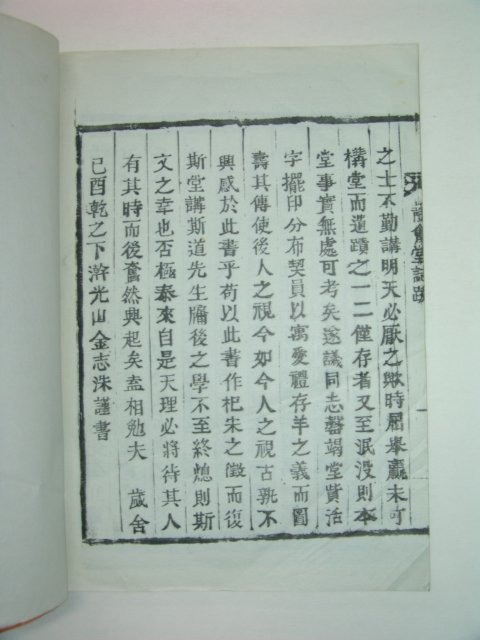 堂誌跋
之士不勤講明天必厭之歟時屈擧贏未可
構堂而遺蹟之一二僅存者又至泯没則本
堂事實無處可考矣遂議同志罄竭堂貲活
字擺印分布契員以寓愛禮存羊之義而圖
壽其傳使後人之視今如今人之視古孰不
興感於此書乎苟以此書作杞宋之徵而復
斯堂講斯道先生牖後之學不至終熄則斯
文之幸也否極泰來自是天理必將待其人
有其時而後奮然興起矣盍相勉夫 歲舍
己酉乾之下澣光山金志洙謹書